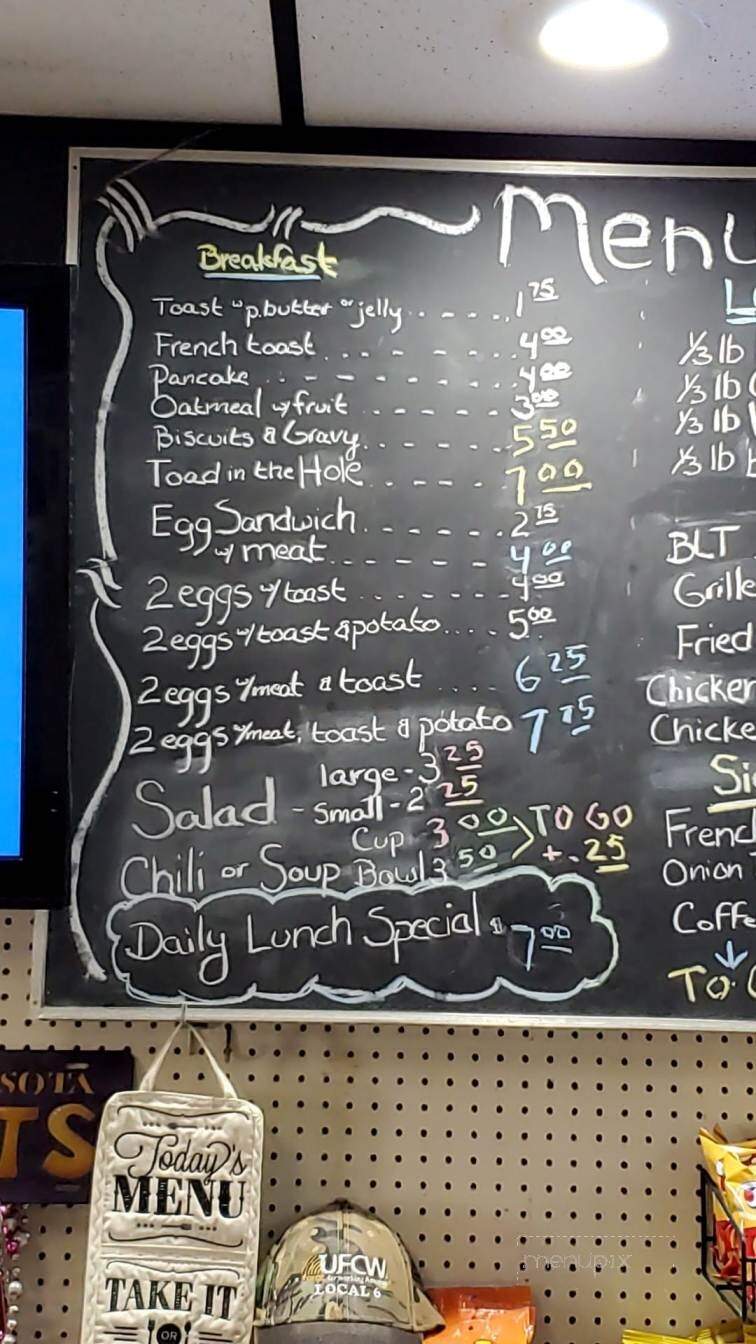 Menu
Breakfast
Toast w p.butter or jelly.. - - - . 1 75
French toast . . - - - - . . 4 00
Pancake . . - - - - - - . . 4 00
Oatmeal w/ fruit . . - - - - . . 3 00
Biscuits & Gravy . . - - - - . . 5 50
Toad in the Hole . . - - - . 7 00
Egg Sandwich . . - - - - . 2 75
w/ meat . . - - - - - . 4 00
2 eggs w/ toast . . . - - - - - 4 00
2 eggs w/ toast & potato . . . . 5 00
2 eggs w/ meat & toast . . . . 6 25
2 eggs w/ meat, toast & potato 7 75
large - 3 25
Salad - small - 2 25
Cup 3 00 > TO GO
Chili or Soup Bowl 3 50 + .25
Daily Lunch Special $ 7 00
1/3 lb
1/3 lb
1/3 lb
1/3 lb
BLT
Grille
Fried
Chicken
Chicke
Si
Frenc
Onion
Coffe
TO
SOTA
TS
Today's
MENU
TAKE IT
OR
UFCW
LOCAL 6
menupix